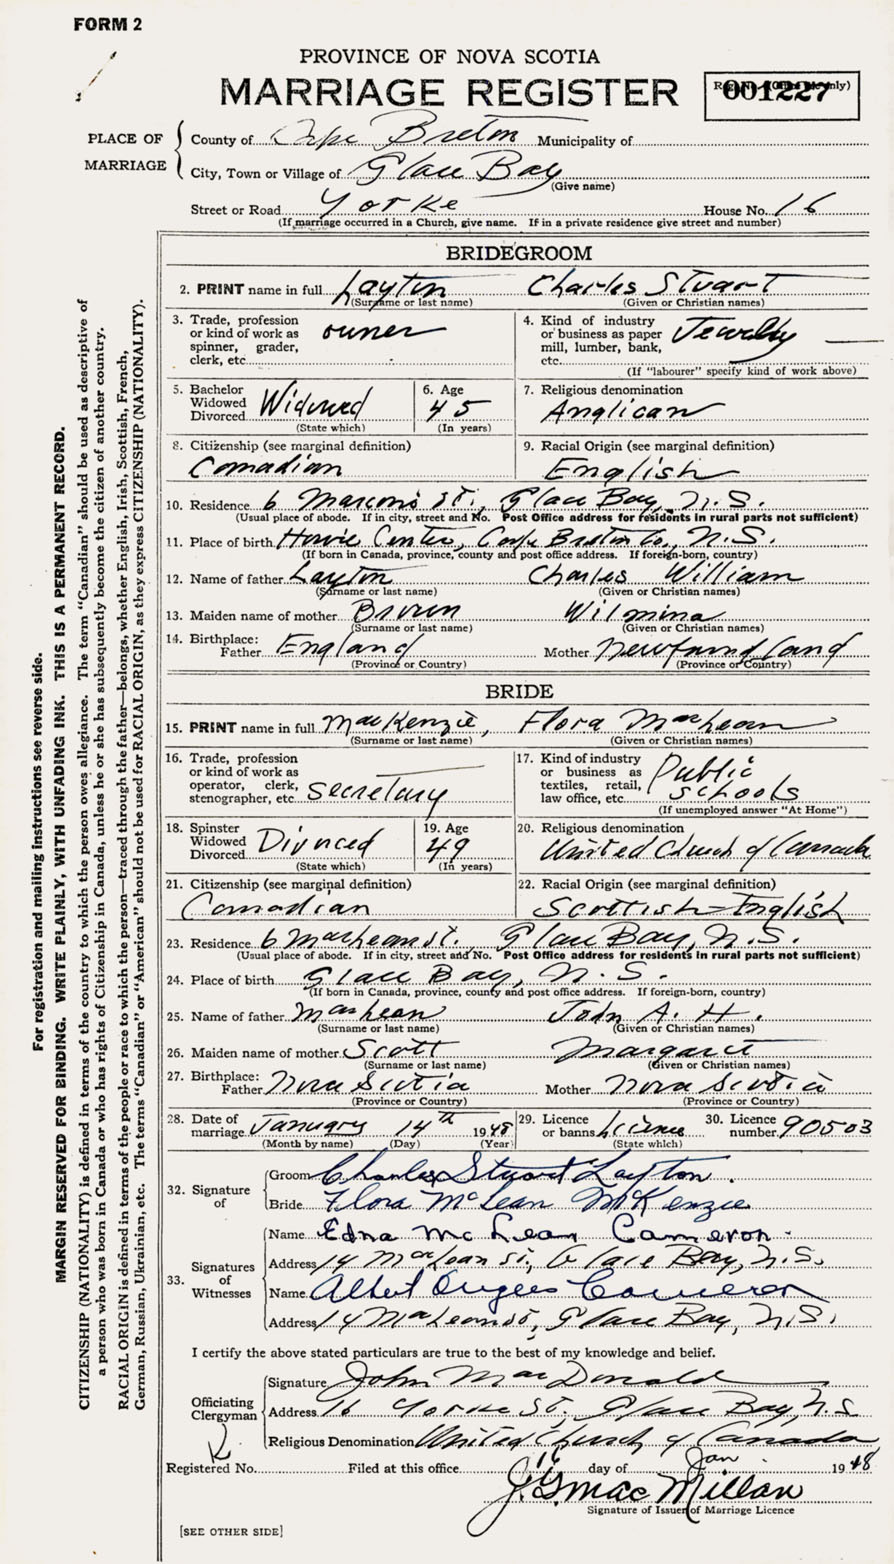 FORM 2
PROVINCE OF NOVA SCOTIA
MARRIAGE REGISTER
001227
PLACE OF MARRIAGE
County of Cape Breton Municipality of
City, Town or Village of Glace Bay
(Give name)
Street or Road Yorke House No. 16
(If marriage occurred in a Church, give name. If in a private residence give street and number)
BRIDEGROOM
2. PRINT name in full Layton Charles Stuart
(Surname or last name) (Given or Christian names)
3. Trade, profession or kind of work as spinner, grader, clerk, etc. owner
4. Kind of industry or business as paper mill, lumber, bank, etc. Jewelry
(If "labourer" specify kind of work above)
5. Bachelor Widowed Divorced Widowed
(State which)
6. Age 45
(In years)
7. Religious denomination
Anglican
8. Citizenship (see marginal definition)
Canadian
9. Racial Origin (see marginal definition)
English
10. Residence 6 Marconi St., Glace Bay, N.S.
(Usual place of abode. If in city, street and No. Post Office address for residents in rural parts not sufficient)
11. Place of birth Howie Center, Cape Breton Co., N.S.
(If born in Canada, province, county and post office address. If foreign-born, country)
12. Name of father Layton Charles William
(Surname or last name) (Given or Christian names)
13. Maiden name of mother Brown Wilmina
(Surname or last name) (Given or Christian names)
14. Birthplace:
Father England Mother Newfoundland
(Province or Country) (Province or Country)
BRIDE
15. PRINT name in full MacKenzie, Flora MacLean
(Surname or last name) (Given or Christian names)
16. Trade, profession or kind of work as operator, clerk, stenographer, etc. Secretary
17. Kind of industry or business as textiles, retail, law office, etc. Public Schools
(If unemployed answer "At Home")
18. Spinster Widowed Divorced Divorced
(State which)
19. Age 49
(In years)
20. Religious denomination
United Church of Canada
21. Citizenship (see marginal definition)
Canadian
22. Racial Origin (see marginal definition)
Scottish-English
23. Residence 6 MacLean St., Glace Bay, N.S.
(Usual place of abode. If in city, street and No. Post Office address for residents in rural parts not sufficient)
24. Place of birth Glace Bay, N.S.
(If born in Canada, province, county and post office address. If foreign-born, country)
25. Name of father MacLean John A. H.
(Surname or last name) (Given or Christian names)
26. Maiden name of mother Scott Margaret
(Surname or last name) (Given or Christian names)
27. Birthplace:
Father Nova Scotia Mother Nova Scotia
(Province or Country) (Province or Country)
28. Date of marriage January 14th 1948
(Month by name) (Day) (Year)
29. Licence or banns Licence
(State which)
30. Licence number 90503
32. Signature of
Groom Charles Stuart Layton.
Bride Flora McLean McKenzie
33. Signatures of Witnesses
Name Edna McLean Cameron.
Address 14 MacLean St., Glace Bay, N.S.
Name Albert Cameron
Address 14 MacLean St., Glace Bay, N.S.
I certify the above stated particulars are true to the best of my knowledge and belief.
Officiating Clergyman
Signature John MacDonald
Address 16 Yorke St. Glace Bay, N.S
Religious Denomination United Church of Canada
Registered No. Filed at this office 16 day of Jan. 1948
J. G. MacMillan
Signature of Issuer of Marriage Licence
[SEE OTHER SIDE]
For registration and mailing instructions see reverse side.
MARGIN RESERVED FOR BINDING. WRITE PLAINLY, WITH UNFADING INK. THIS IS A PERMANENT RECORD.
CITIZENSHIP (NATIONALITY) is defined in terms of the country to which the person owes allegiance. The term "Canadian" should be used as descriptive of
a person who was born in Canada or who has rights of Citizenship in Canada, unless he or she has subsequently become the citizen of another country.
RACIAL ORIGIN is defined in terms of the people or race to which the person—traced through the father—belongs, whether English, Irish, Scottish, French,
German, Russian, Ukrainian, etc. The terms "Canadian" or "American" should not be used for RACIAL ORIGIN, as they express CITIZENSHIP (NATIONALITY).